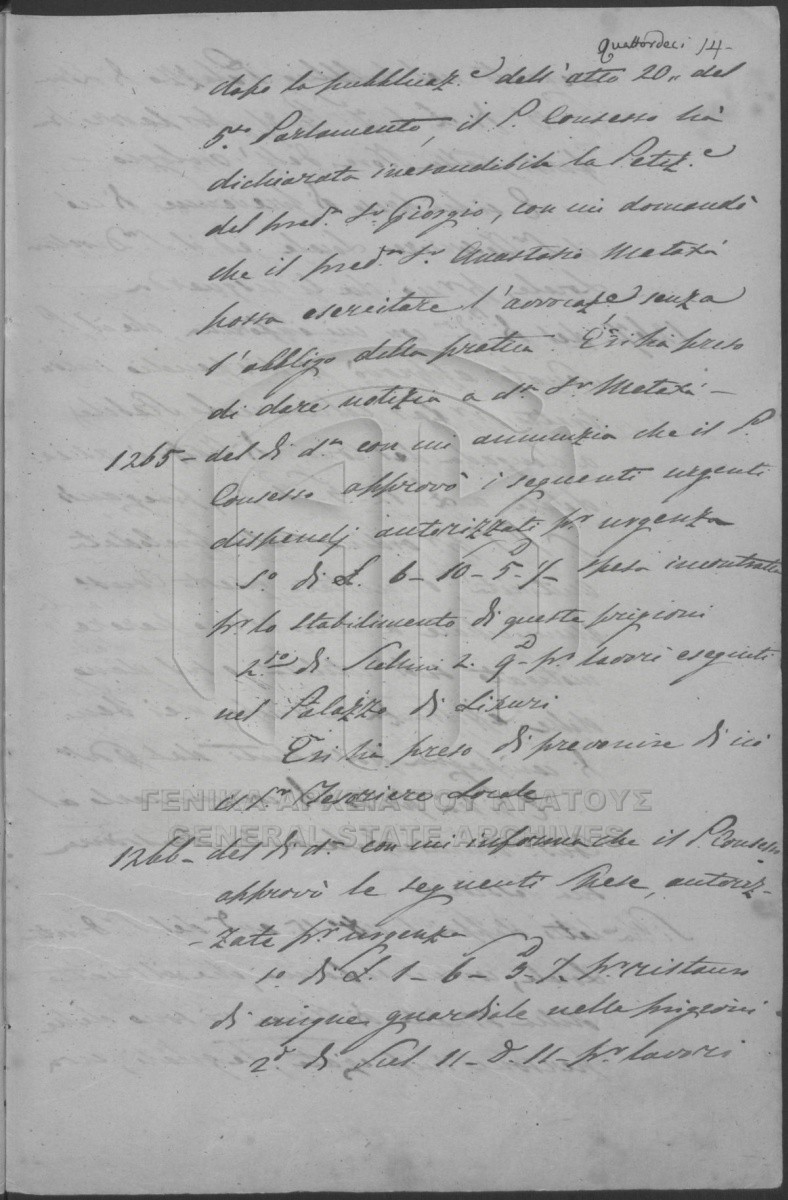 Quattordeci 14-
dopo la pubblicaz.e dell'atto 20,, del
5.to Parlamento, il P. Consesso hà
dichiarata inesaudibile la Petiz.e
del pred.o Sr Giorgio, con cui domandò
che il pred.o Sr Anastasio Metaxà
possa esercitare l'avvocaz.e senza
l'obbligo della pratica. Ersi ha preso
di dare notizia a d.o Sr Metaxà -
1265 - del dì d.o con cui annunzia che il P.
Consesso approvò i seguenti urgenti
dispendj autorizzati pr urgenza
1.o di £. 6 - 10 - 5. 1/2 spesa incontrata
pr lo stabilimento di queste prigioni
2.do di Scellini 2. 9d - pr lavori eseguiti
nel Palazzo di Lixuri
Ersi ha preso di prevenire di ciò
il Sr Tesoriere Locale
ΓΕΝΙΚΑ ΑΡΧΕΙΑ ΤΟΥ ΚΡΑΤΟΥΣ
GENERAL STATE ARCHIVES
1266 - del dì d.o con cui informa che il P. Consesso
approvò le seguenti spese, autoriz-
-zate pr urgenza
1.o di £. 1 - 6 - 3 1/2. pr ristauro
di cinque guardiole nelle prigioni
2.o di Scel. 11 - d. 11 - pr lavori